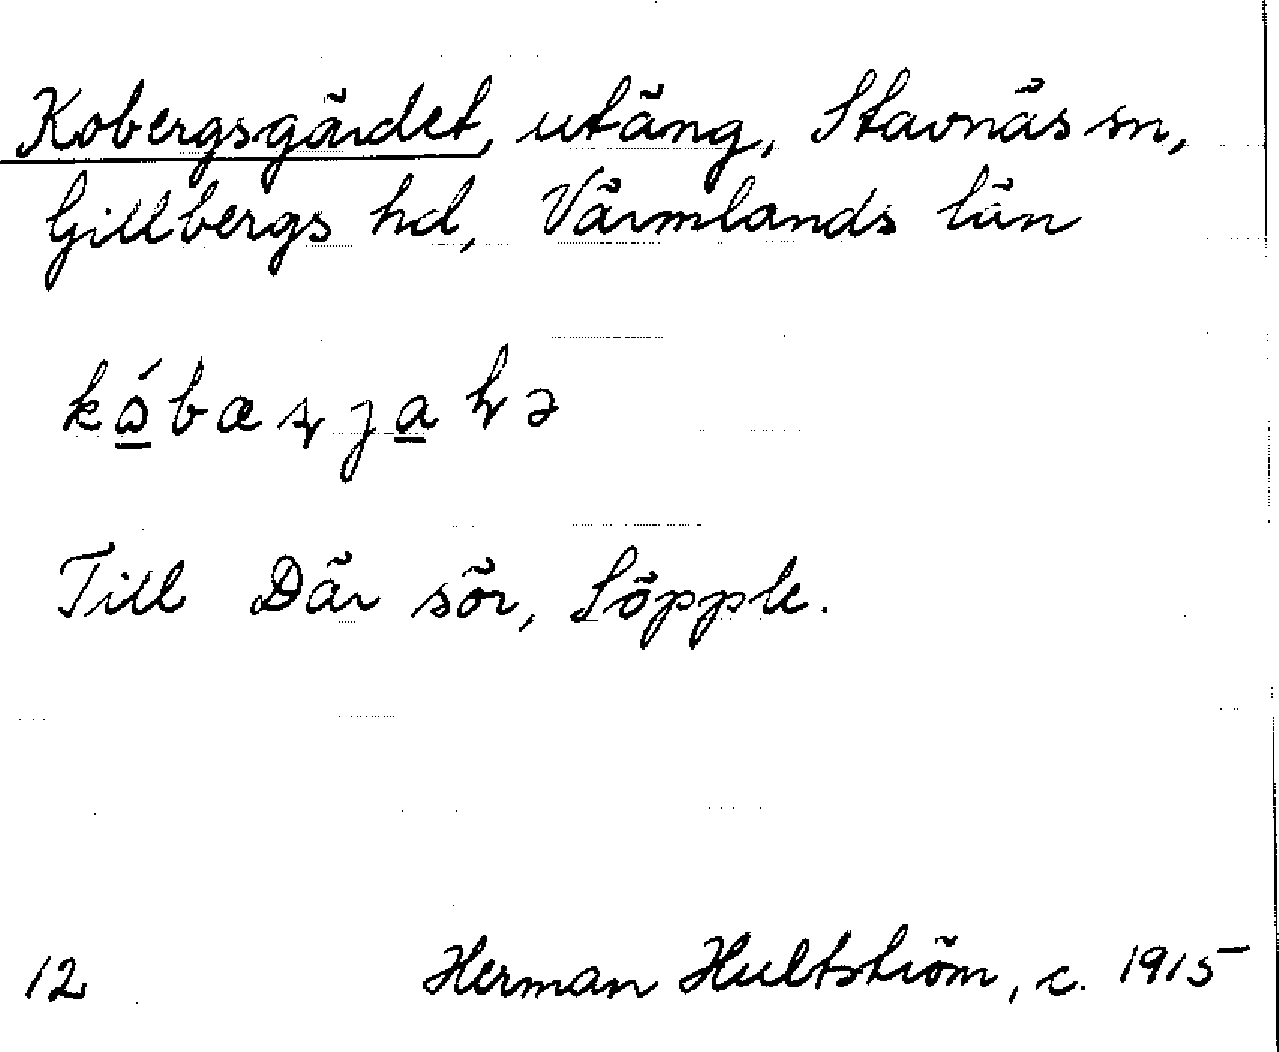 Kobergsgärdet, utäng, Stavnäs sn,
Gillbergs hd, Värmlands län
Till Där sör, Söpple.
12 Herman Hultström, c. 1915